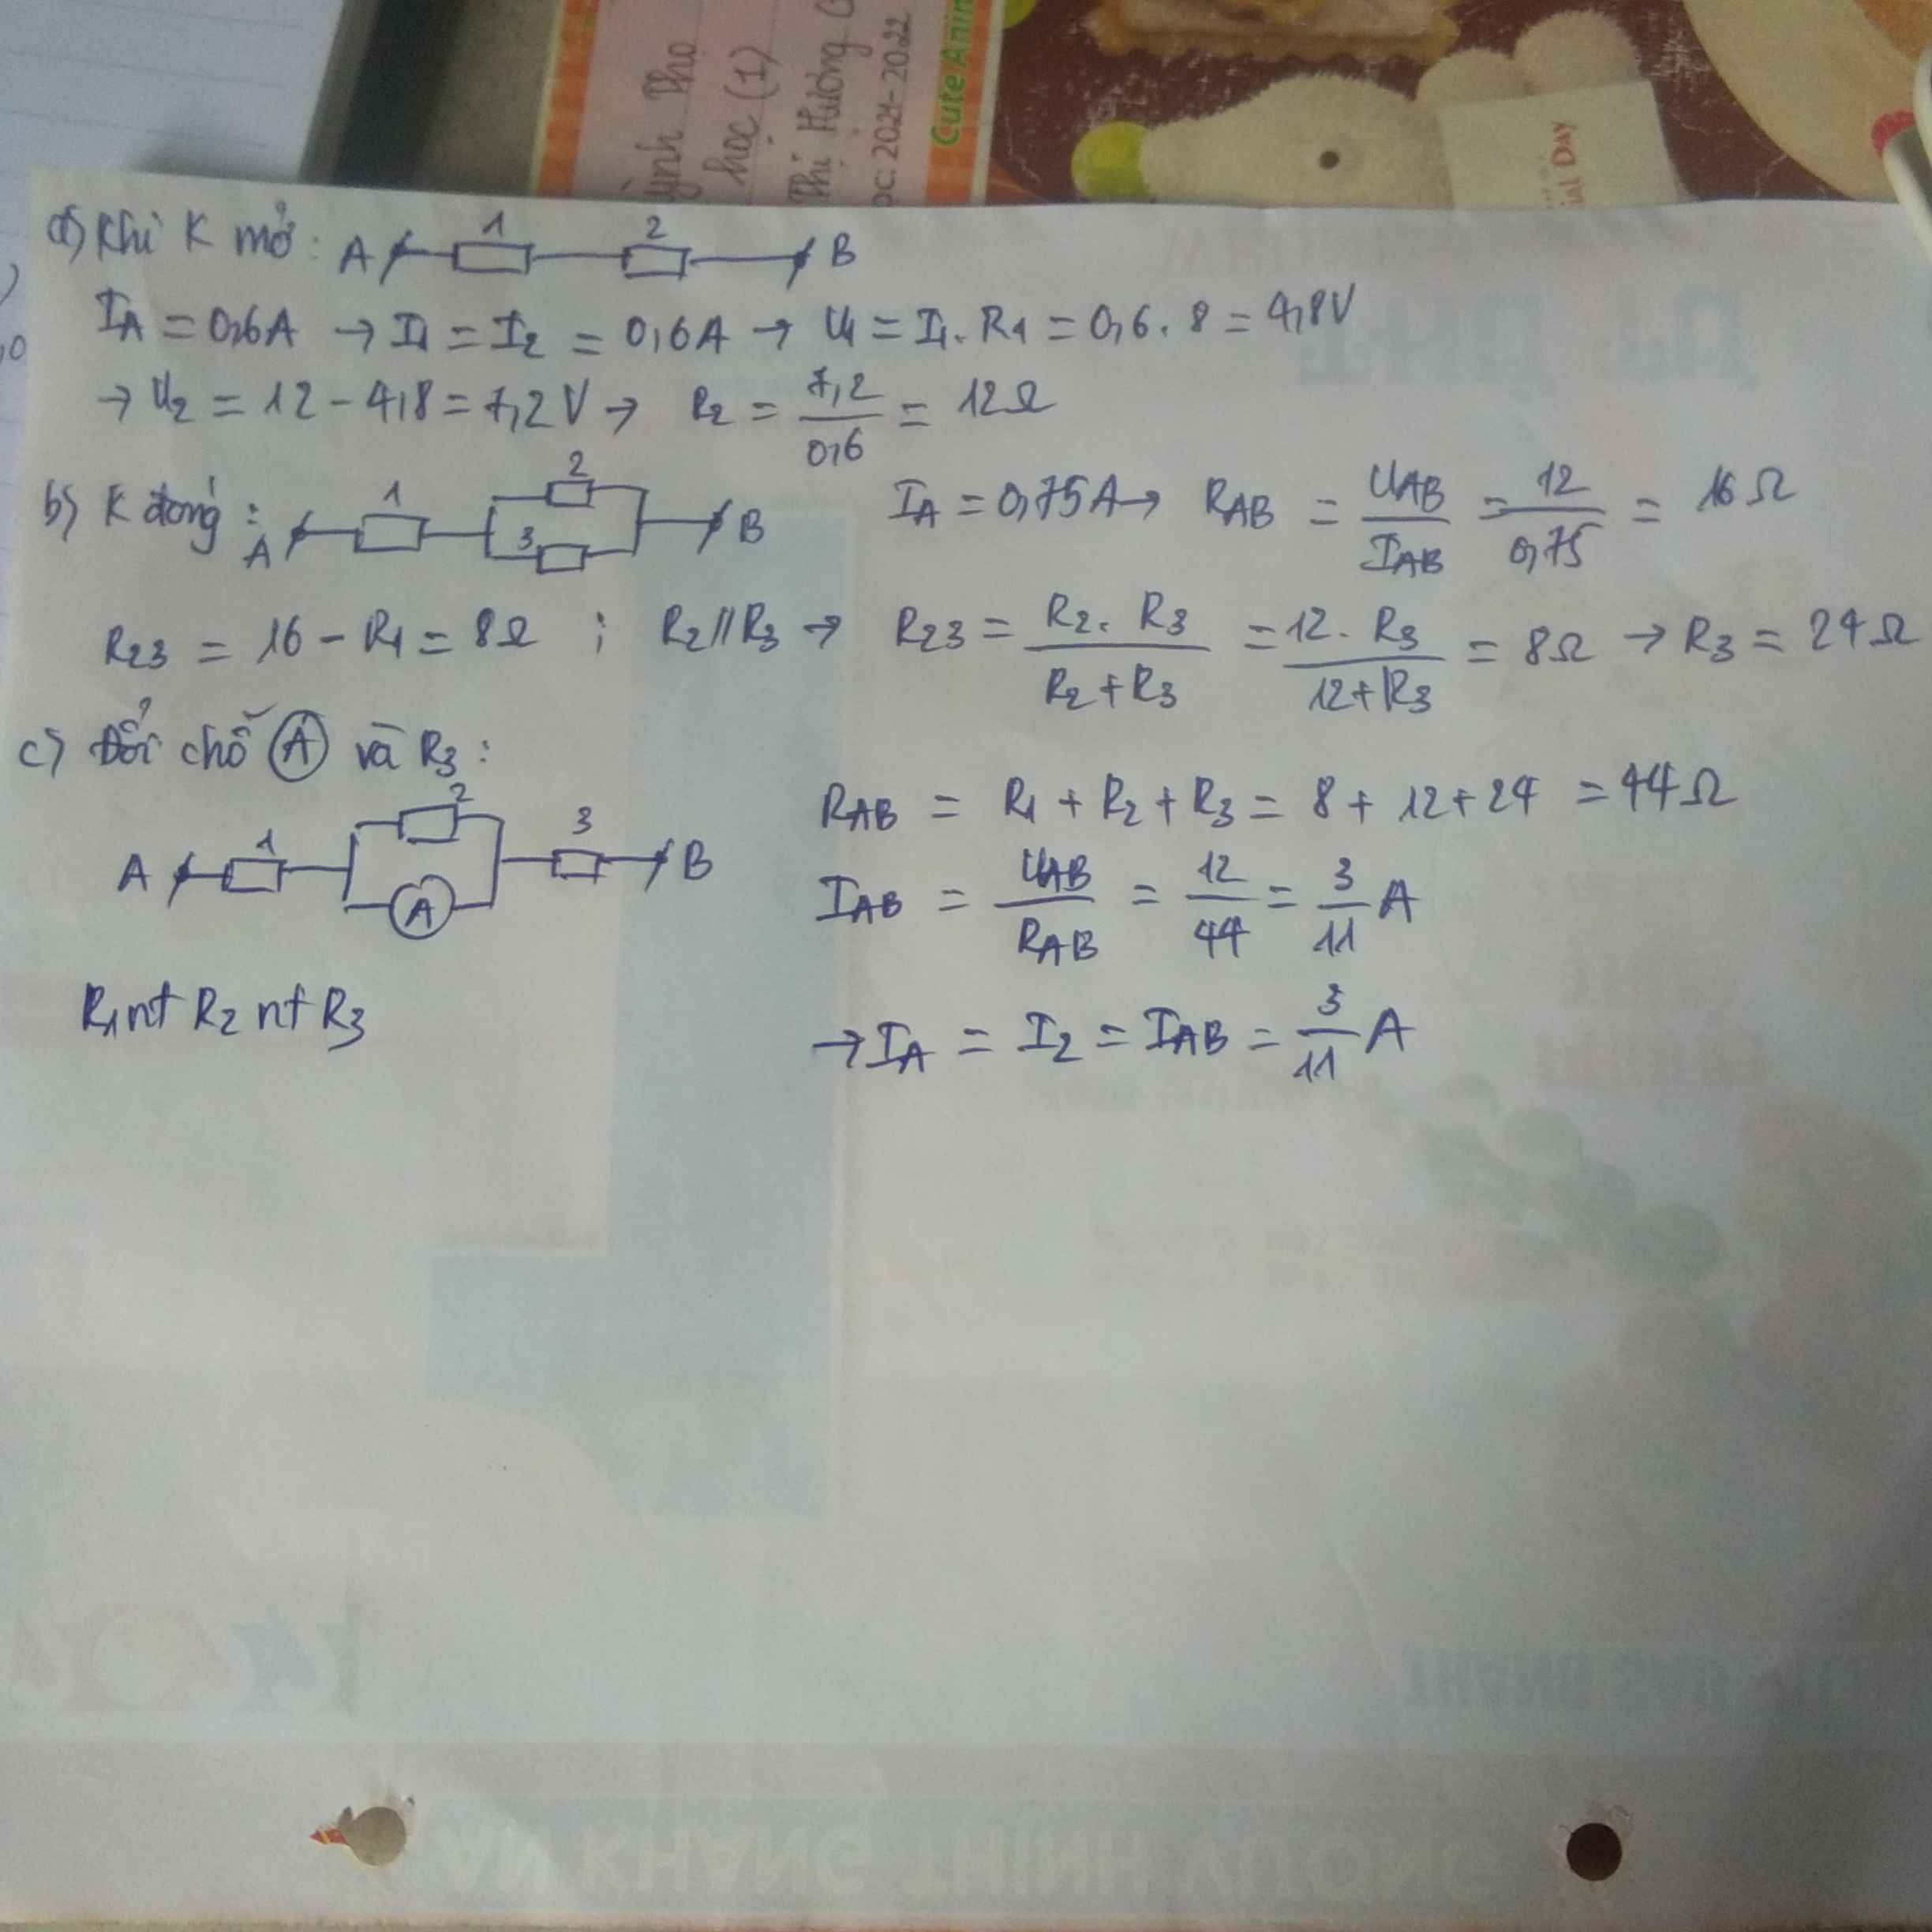 ỳnh Thọ
học (1)
Thị Hương
ọc: 2021-2022
Cute Anim
ial Day
a) Khi K mở: A 1 2 B
I_A = 0,6A → I_1 = I_2 = 0,6A → U_1 = I_1 . R_1 = 0,6 . 8 = 4,8V
→ U_2 = 12 - 4,8 = 7,2V → R_2 = 7,2/0,6 = 12Ω
b) K đóng: A 1 2 3 B I_A = 0,75A → R_AB = U_AB/I_AB = 12/0,75 = 16Ω
R_23 = 16 - R_1 = 8Ω ; R_2 // R_3 → R_23 = R_2 . R_3/R_2 + R_3 = 12 . R_3/12 + R_3 = 8Ω → R_3 = 24Ω
c) Đổi chỗ A và R_3:
A 1 2 A 3 B
R_AB = R_1 + R_2 + R_3 = 8 + 12 + 24 = 44Ω
I_AB = U_AB/R_AB = 12/44 = 3/11 A
R_1 nt R_2 nt R_3
→ I_A = I_2 = I_AB = 3/11 A
AN KHANG THỊNH VƯỢNG